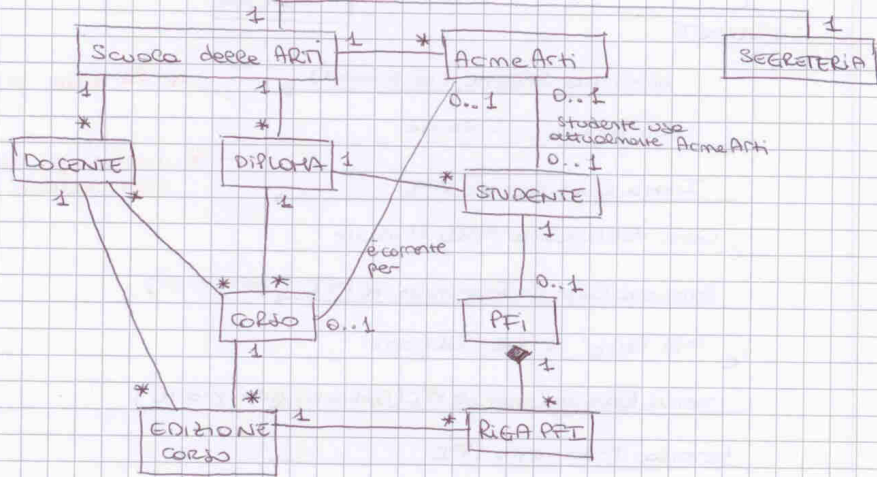 1
1
Scuola delle ARTI
1
*
AcmeArti
SEGRETERIA
1
1
0..1
0..1
Studente usa
attualmente AcmeArti
*
*
0..1
DOCENTE
DIPLOMA
1
*
STUDENTE
1
*
1
1
è corrente
per
*
*
0..1
CORSO
0..1
PFI
1
1
*
*
*
EDIZIONE
CORSO
1
*
RIGA PFI